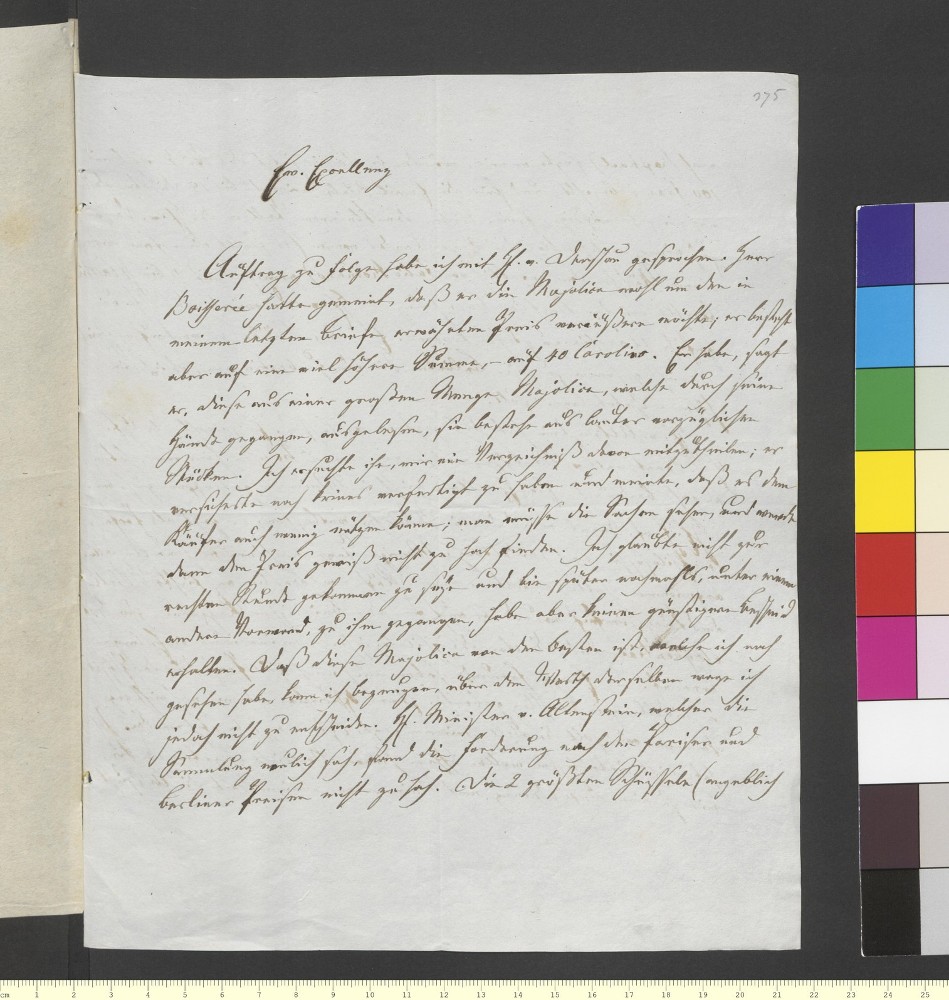 375
Ew. Excellenz
Auftrag zu Folge habe ich mit H. v. Derschau gesprochen. Herr
Boisserée hatte gemeint, daß er die Majolica wohl um den in
meinem letzten Briefe erwähnten Preis veräußern möchte; er besteht
aber auf eine viel höhere Summe, – auf 40 Carolins. Er habe, sagt
er, diese aus einer großen Menge Majolica, welche durch seine
Hände gegangen, ausgelesen, sie bestehe aus lauter vorzüglichen
Stücken. Ich ersuchte ihn, mir ein Verzeichniß davon mitzutheilen; er
versicherte noch keines verfertigt zu haben und meinte, daß es dem
Käufer auch wenig nützen könne; man müsse die Sachen sehen, und werde
dann den Preis gewiß nicht zu hoch finden. Ich glaubte nicht zur
rechten Stunde gekommen zu seyn und bin später nochmahls, unter einem
andern Vorwand, zu ihm gegangen, habe aber keinen günstigern Bescheid
erhalten. Daß diese Majolica von den besten ist, welche ich noch
gesehen habe, kann ich bezeugen, über den Werth derselben wage ich
jedoch nicht zu entscheiden. H. Minister v. Altenstein, welcher die
Sammlung neulich sah, fand die Forderung nach den Pariser und
Berliner Preisen nicht zu hoch. Die 2 größten Schüsseln (angeblich